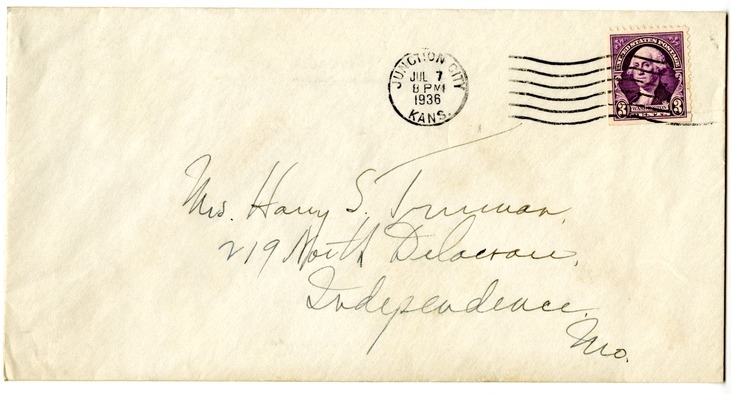 JUNCTION CITY
JUL 7
8 PM
1936
KANS.
UNITED STATES POSTAGE
3 WASHINGTON 3
CENTS
Mrs. Harry S. Truman,
219 North Delaware,
Independence,
Mo.